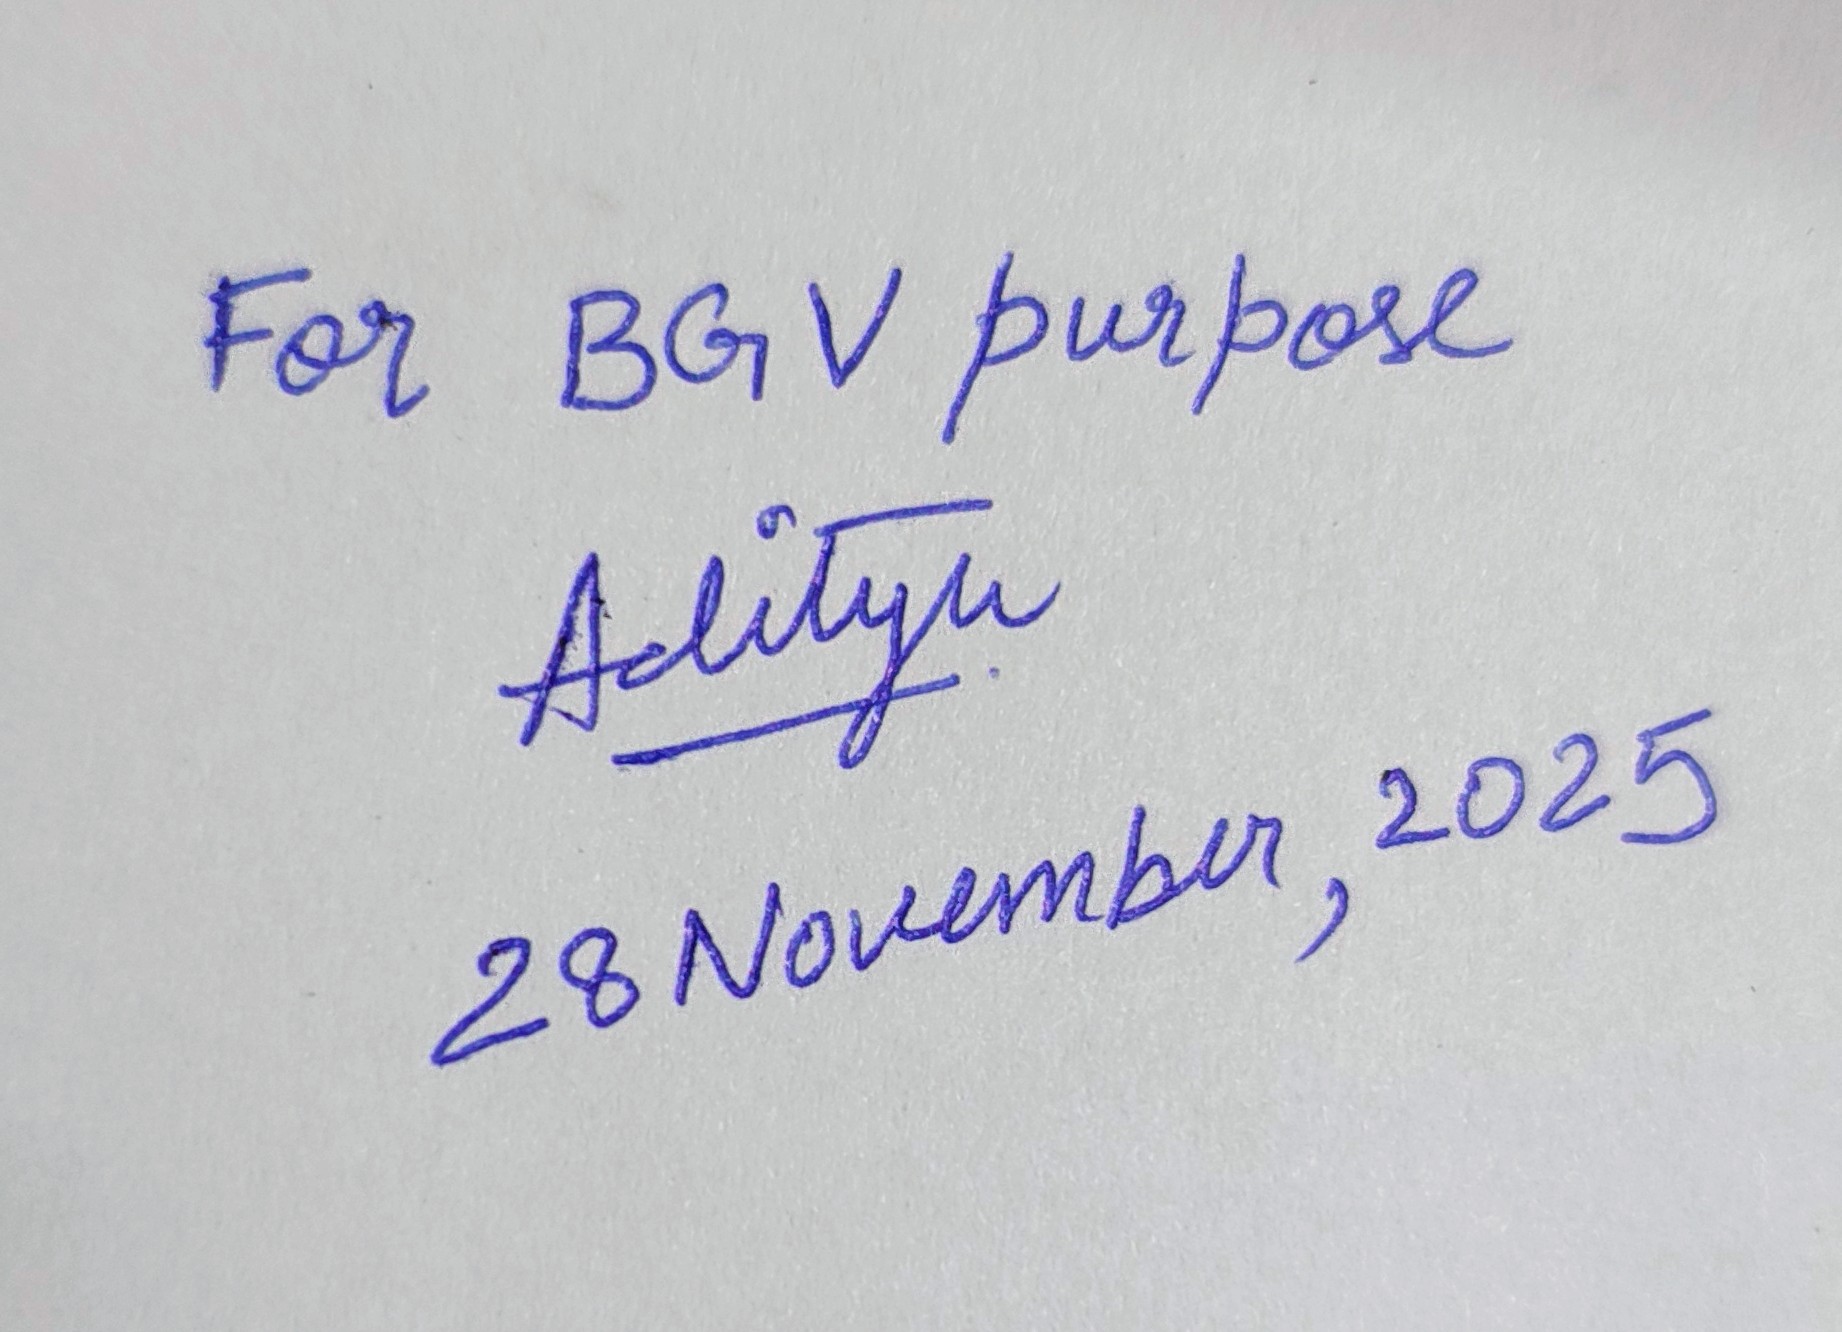 For BGV purpose
Aditya
28 November, 2025